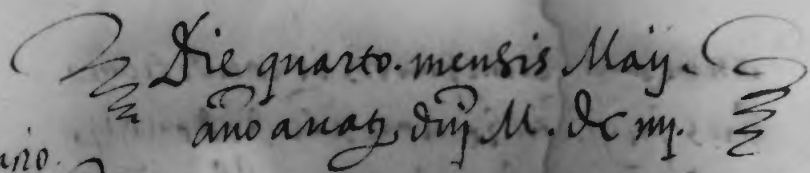 Die quarto. mensis Maij.
año a natz dnj M. dc iiij.